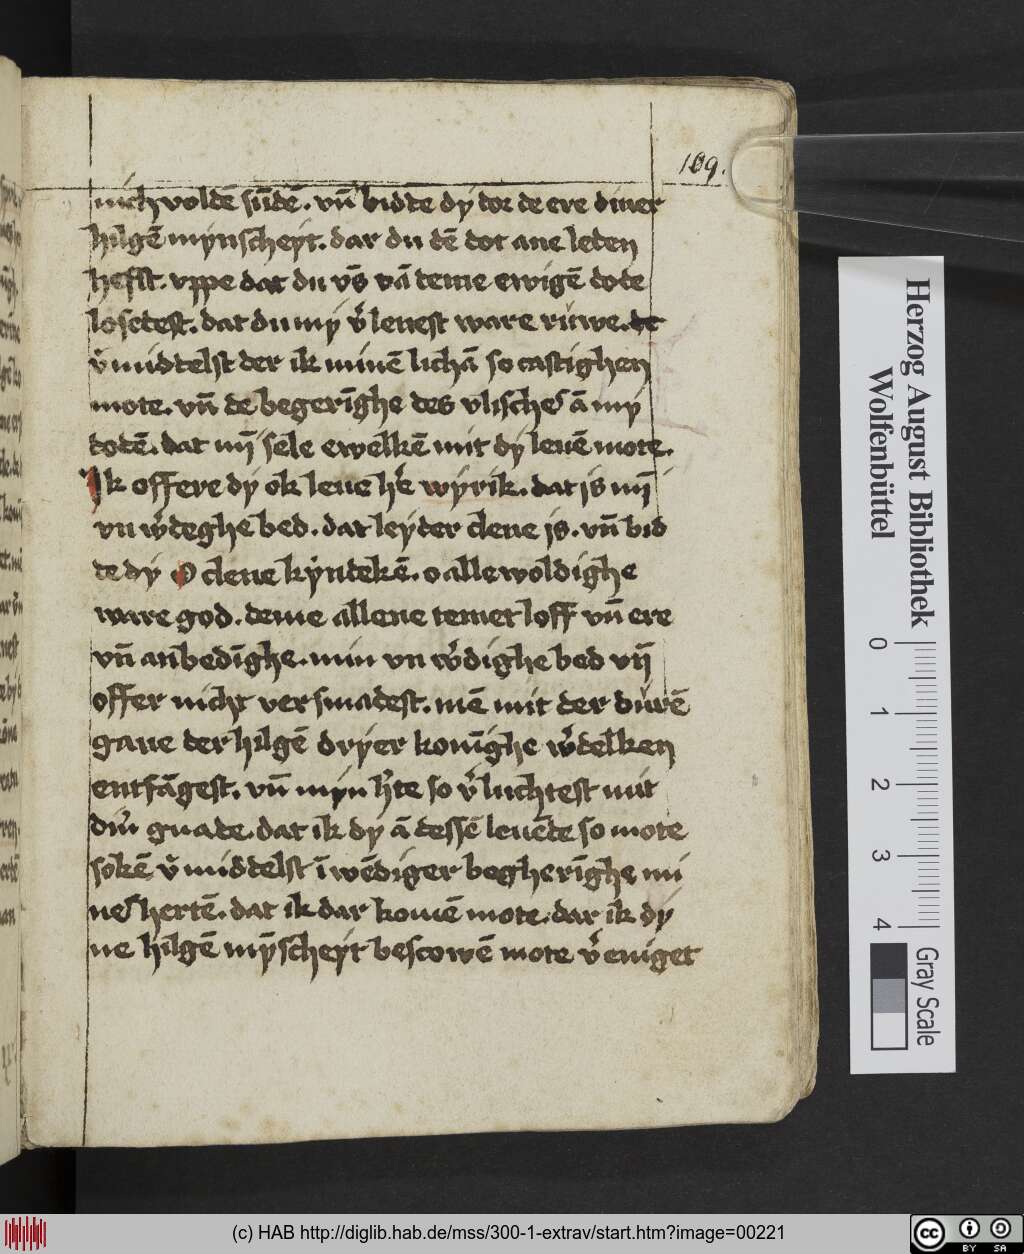 109.
nichvoldē sūdē. vn̄ bidde dy dor de ere diner
hilgē mynscheyt. dar du dē dot ane leden
hefst. vppe dat du vs̄ vā deme ewigē dode
losedest. dat du my v̓lenest ware ruwe. de
v̓middelst der ik minē lichā so castighen
mote. vn̄ de begerīghe des vlische᷒ ā my
dodē. dat mȳ sele ewelkē mit dy leuē mote.
Ik offere dy ok leue he᷒ wyrik. dat is mȳ
vn w̓deghe bed. dat leyder clene is. vn̄ bid
de dy O clene kyndekē. o alle woldighe
ware god. deme allene temet loff vn̄ ere
vn̄ anbedīghe. min vn w̓dighe bed vn̄
offer nicht versmadest. mē mit der durē
gaue der hilgē dryer konīghe w̓delken
entfāgest. vn̄ myn h̓te so v̓luchtest mit
din᷒ gnade. dat ik dy ā dessē leuēde so mote
sokē v̓middelst īwēdiger begherīghe mi
ne᷒ hertē. dat ik dar komē mote. dar ik dy
ne hilgē mȳscheyt bescowē mote v̓eniget
Herzog August Bibliothek
Wolfenbüttel
0 1 2 3 4
Gray Scale
(c) HAB http://diglib.hab.de/mss/300-1-extrav/start.htm?image=00221
cc BY SA